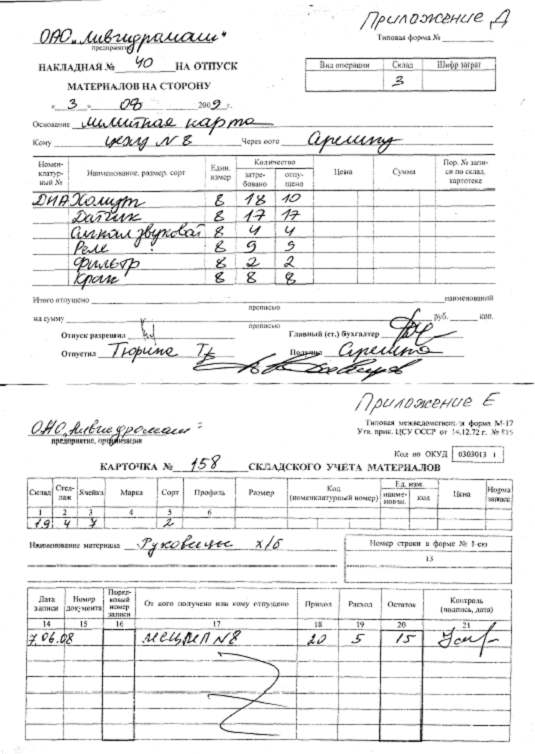 Приложение Д
ОАО „Ливгидромаш"
предприятие
Типовая форма №
НАКЛАДНАЯ № 40 НА ОТПУСК
МАТЕРИАЛОВ НА СТОРОНУ
Вид операции Склад Шифр затрат
3
« 3 » 08 2009 г.
Основание лимитная карта
Кому цеху N 8 Через кого
Номенклатурный № Наименование, размер, сорт Един. измер Количество затребовано отпущено Цена Сумма Пор. № записи по склад. картотеке
ДИА Хомут 8 18 10
Датчик 8 17 17
Сигнал звуковой 8 4 4
Реле 8 9 9
Фильтр 8 2 2
Кран 8 8 8
Итого отпущено наименований
прописью
на сумму руб. коп.
прописью
Отпуск разрешил Главный (ст.) бухгалтер
Отпустил Тюрина Получил
Приложение Е
ОАО „Ливгидромаш"
предприятие, организация
Типовая межведомственная форма М-17
Утв. прик. ЦСУ СССР от 14.12.72 г. № 816
Код по ОКУД 0303013 1
КАРТОЧКА № 158 СКЛАДСКОГО УЧЕТА МАТЕРИАЛОВ
Склад Стеллаж Ячейка Марка Сорт Профиль Размер Код (номенклатурный номер) Ед. изм. наименов. код Цена Норма запаса
1 2 3 4 5 6
19 4 7 2
Наименование материала Руковицы х/б
Номер строки в форме № 1-сн
13
Дата записи Номер документа Порядковый номер записи От кого получено или кому отпущено Приход Расход Остаток Контроль (подпись, дата)
14 15 16 17 18 19 20 21
7.06.08 МСЦМП N8 20 5 15